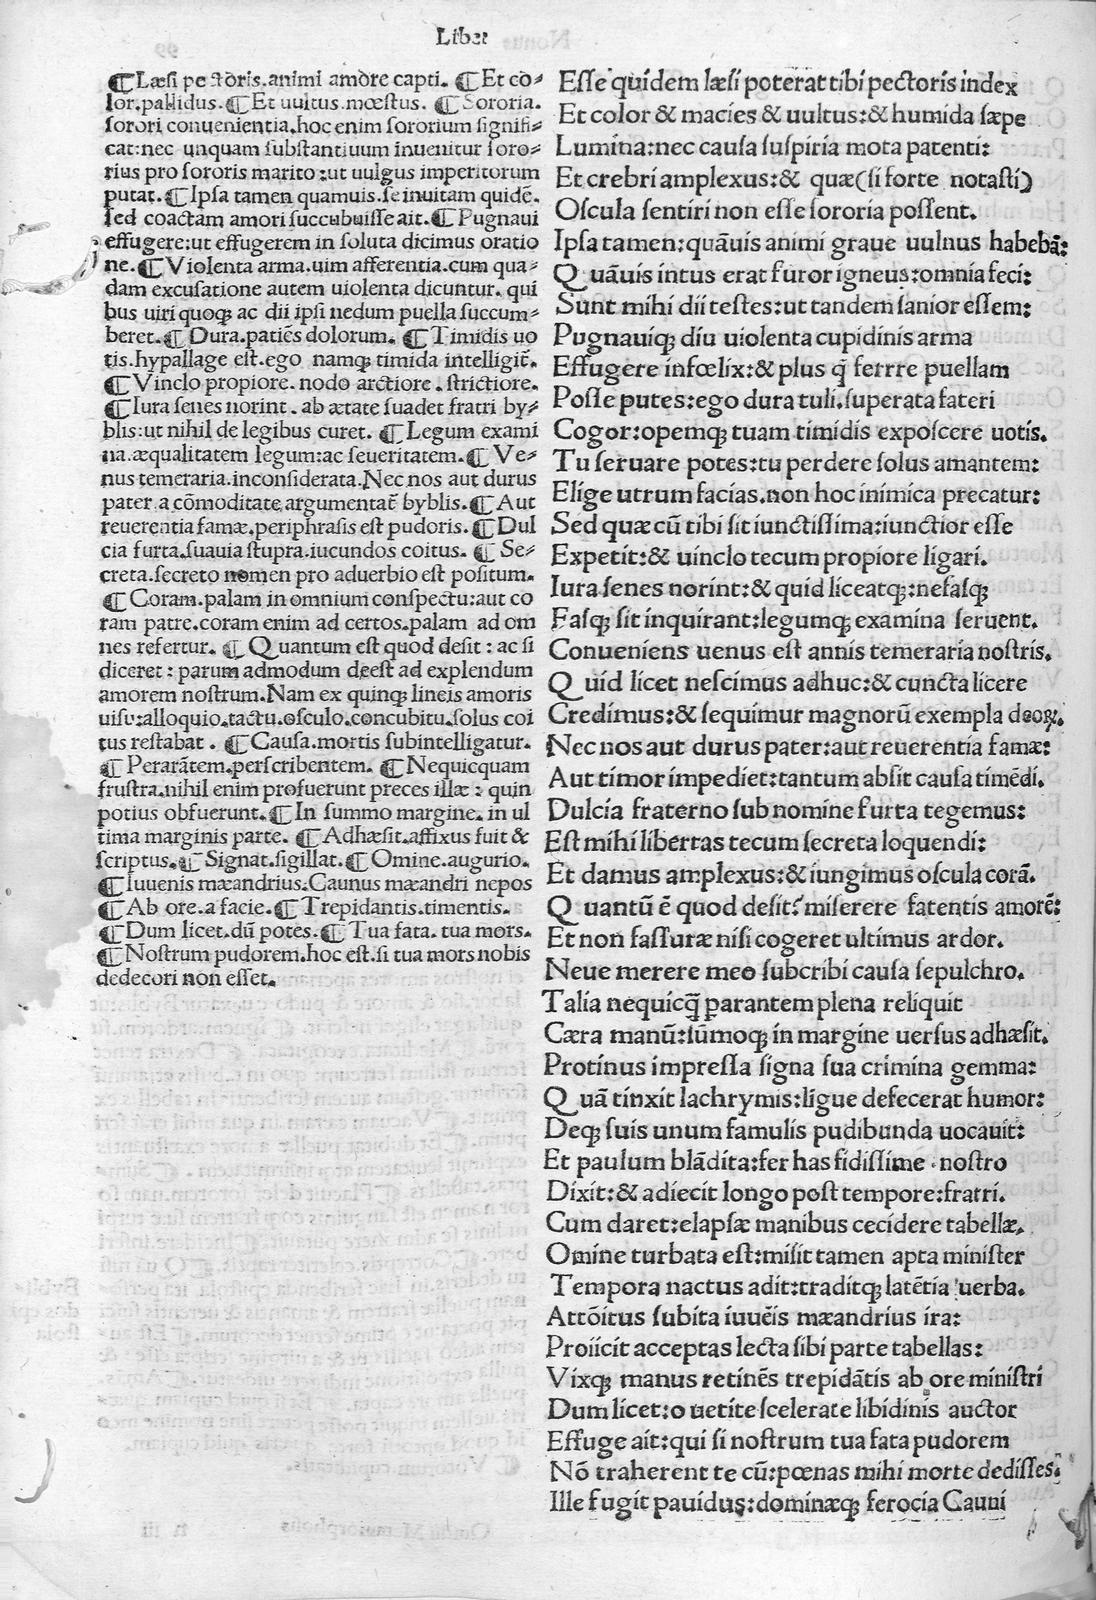 Liber
¶Læſi pectoris.animi amore capti. ¶Et co⸗
lor.pallidus.¶Et uultus.mœſtus. ¶Sororia.
ſorori conuenientia.hoc enim ſororium ſignifi⸗
cat:nec unquam ſubſtantiuum inuenitur ſoro⸗
rius pro ſororis marito :ut uulgus imperitorum
putat.¶Ipſa tamen quamuis.ſe inuitam quidē.
ſed coactam amori ſuccubuiſſe ait.¶Pugnaui
effugere:ut effugerem in ſoluta dicimus oratio
ne.¶Violenta arma.uim afferentia.cum qua⸗
dam excuſatione autem uiolenta dicuntur. qui
bus uiri quoqꝫ ac dii ipſi nedum puella ſuccum⸗
beret.¶Dura.patiēs dolorum. ¶Timidis uo
tis.hypallage eſt.ego namqꝫ timida intelligit̄.
¶Vinclo propiore. nodo arctiore . ſtrictiore.
¶Iura ſenes norint . ab ætate ſuadet fratri by⸗
blis:ut nihil de legibus curet. ¶Legum exami
na.æqualitatem legum:ac ſeueritatem.¶Ve⸗
nus temeraria.inconſiderata.Nec nos aut durus
pater.a cōmoditate argumentat̄ byblis.¶Aut
reuerentia famæ.periphraſis eſt pudoris.¶Dul
cia furta.ſuauia ſtupra.iucundos coitus. ¶Se⸗
creta.ſecreto nomen pro aduerbio eſt poſitum.
¶Coram.palam in omnium conſpectu:aut co
ram patre.coram enim ad certos.palam ad om
nes refertur. ¶Quantum eſt quod deſit : ac ſi
diceret : parum admodum deeſt ad explendum
amorem noſtrum.Nam ex quinqꝫ lineis amoris
uiſu:alloquio.tactu.oſculo.concubitu.ſolus coi
tus reſtabat . ¶Cauſa.mortis ſubintelligatur.
¶Perarātem.perſcribentem. ¶Nequicquam
fruſtra.nihil enim profuerunt preces illæ : quin
potius obfuerunt.¶In ſummo margine. in ul
tima marginis parte. ¶Adhæſit.affixus fuit &
ſcriptus.¶Signat.ſigillat.¶Omine.augurio.
¶Iuuenis mæandrius.Caunus mæandri nepos
¶Ab ore.a facie.¶Trepidantis.timentis.
¶Dum licet.dū potes.¶Tua fata. tua mors.
¶Noſtrum pudorem.hoc eſt.ſi tua mors nobis
dedecori non eſſet.
Eſſe quidem læſi poterat tibi pectoris index
Et color & macies & uultus:& humida ſæpe
Lumina:nec cauſa ſuſpiria mota patenti:
Et crebri amplexus:& quæ(ſi forte notaſti)
Oſcula ſentiri non eſſe ſororia poſſent.
Ipſa tamen:quāuis animi graue uulnus habebā:
Quāuis intus erat furor igneus:omnia feci:
Sunt mihi dii teſtes:ut tandem ſanior eſſem:
Pugnauiqꝫ diu uiolenta cupidinis arma
Effugere infœlix:& plus q̄ ferrre puellam
Poſſe putes:ego dura tuli.ſuperata fateri
Cogor:opemqꝫ tuam timidis expoſcere uotis.
Tu ſeruare potes:tu perdere ſolus amantem:
Elige utrum facias.non hoc inimica precatur:
Sed quæ cū tibi ſit iunctiſſima:iunctior eſſe
Expetit:& uinclo tecum propiore ligari.
Iura ſenes norint:& quid liceatqꝫ:nefaſqꝫ
Faſqꝫ ſit inquirant:legumqꝫ examina ſeruent.
Conueniens uenus eſt annis temeraria noſtris.
Quid licet neſcimus adhuc:& cuncta licere
Credimus:& ſequimur magnorū exempla deoꝝ.
Nec nos aut durus pater:aut reuerentia famæ:
Aut timor impediet:tantum abſit cauſa timēdi.
Dulcia fraterno ſub nomine furta tegemus:
Eſt mihi libertas tecum ſecreta loquendi:
Et damus amplexus:& iungimus oſcula corā.
Quantū ē quod deſit? miſerere fatentis amorē:
Et non faſſuræ niſi cogeret ultimus ardor.
Neue merere meo ſubcribi cauſa ſepulchro.
Talia nequicq̄ ꝑarantem plena reliquit
Cæra manū:ſūmoqꝫ in margine uerſus adhæſit.
Protinus impreſſa ſigna ſua crimina gemma:
Quā tinxit lachrymis:ligue defecerat humor:
Deqꝫ ſuis unum famulis pudibunda uocauit:
Et paulum blādita:fer has fidiſſime . noſtro
Dixit:& adiecit longo poſt tempore:fratri.
Cum daret:elapſæ manibus cecidere tabellæ.
Omine turbata eſt:miſit tamen apta miniſter
Tempora nactus adit:traditqꝫ latētia uerba.
Attōitus ſubita iuuēis mæandrius ira:
Proiicit acceptas lecta ſibi parte tabellas:
Vixqꝫ manus retinēs trepidātis ab ore miniſtri
Dum licet:o uetite ſcelerate libidinis auctor
Effuge ait:qui ſi noſtrum tua fata pudorem
Nō traherent te cū:pœnas mihi morte dediſſes.
Ille fugit pauidus:dominæqꝫ ferocia Cauni